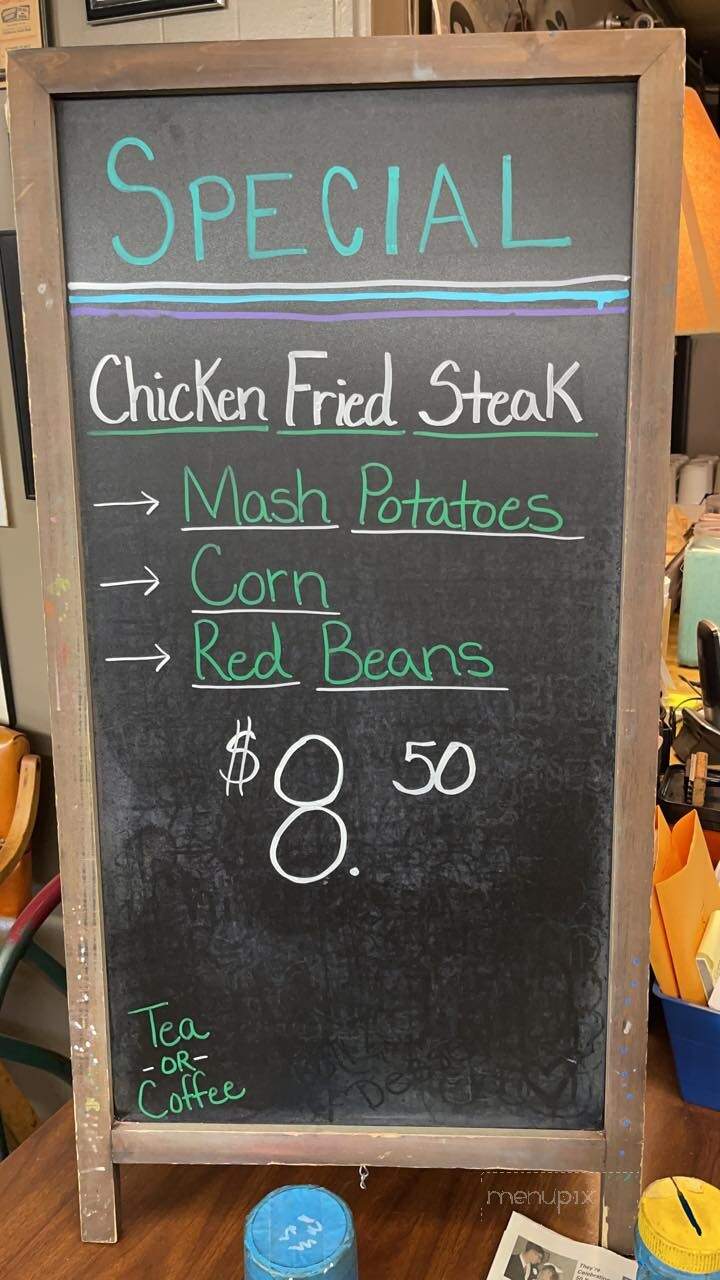 SPECIAL
Chicken Fried Steak
→ Mash Potatoes
→ Corn
→ Red Beans
$8.50
Tea
-OR-
Coffee
menupix
They're